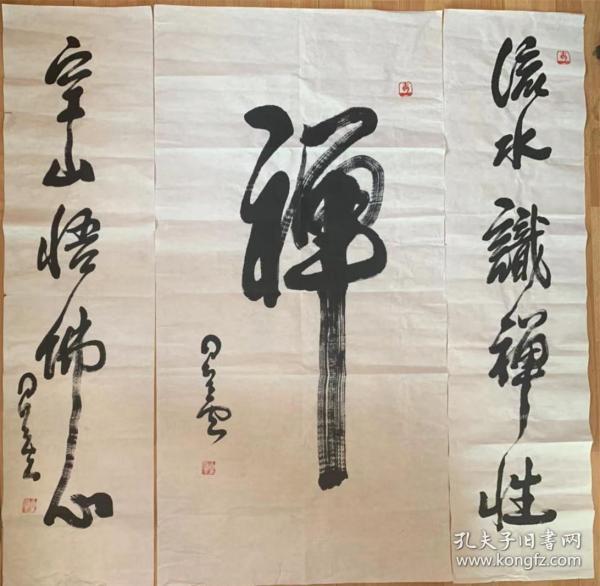 流水識禪性
禪
空山悟佛心
孔夫子旧书网
www.kongfz.com